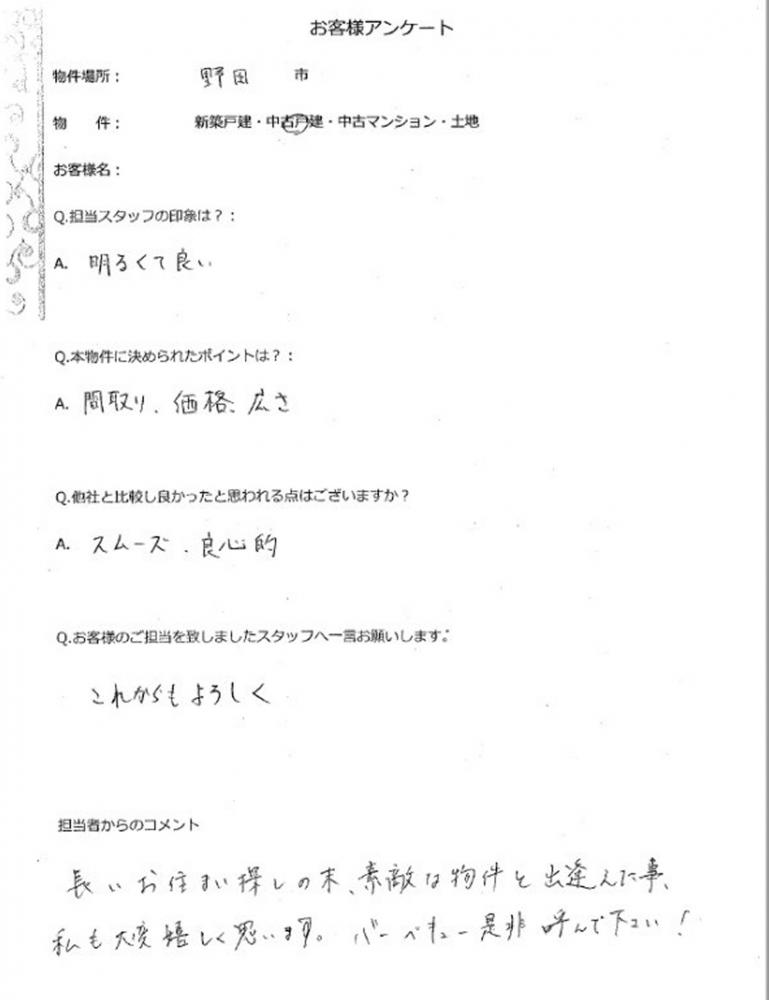 お客様アンケート
物件場所： 野田 市
物　件： 新築戸建・中古戸建・中古マンション・土地
お客様名：
Q.担当スタッフの印象は？：
A. 明るくて良い
Q.本物件に決められたポイントは？：
A. 間取り、価格、広さ
Q.他社と比較し良かったと思われる点はございますか？
A. スムーズ、良心的
Q.お客様のご担当を致しましたスタッフへ一言お願いします。
これからもよろしく
担当者からのコメント
長いお住まい探しの末、素敵な物件と出逢えた事、
私も大変嬉しく思います。バーベキュー是非呼んで下さい！